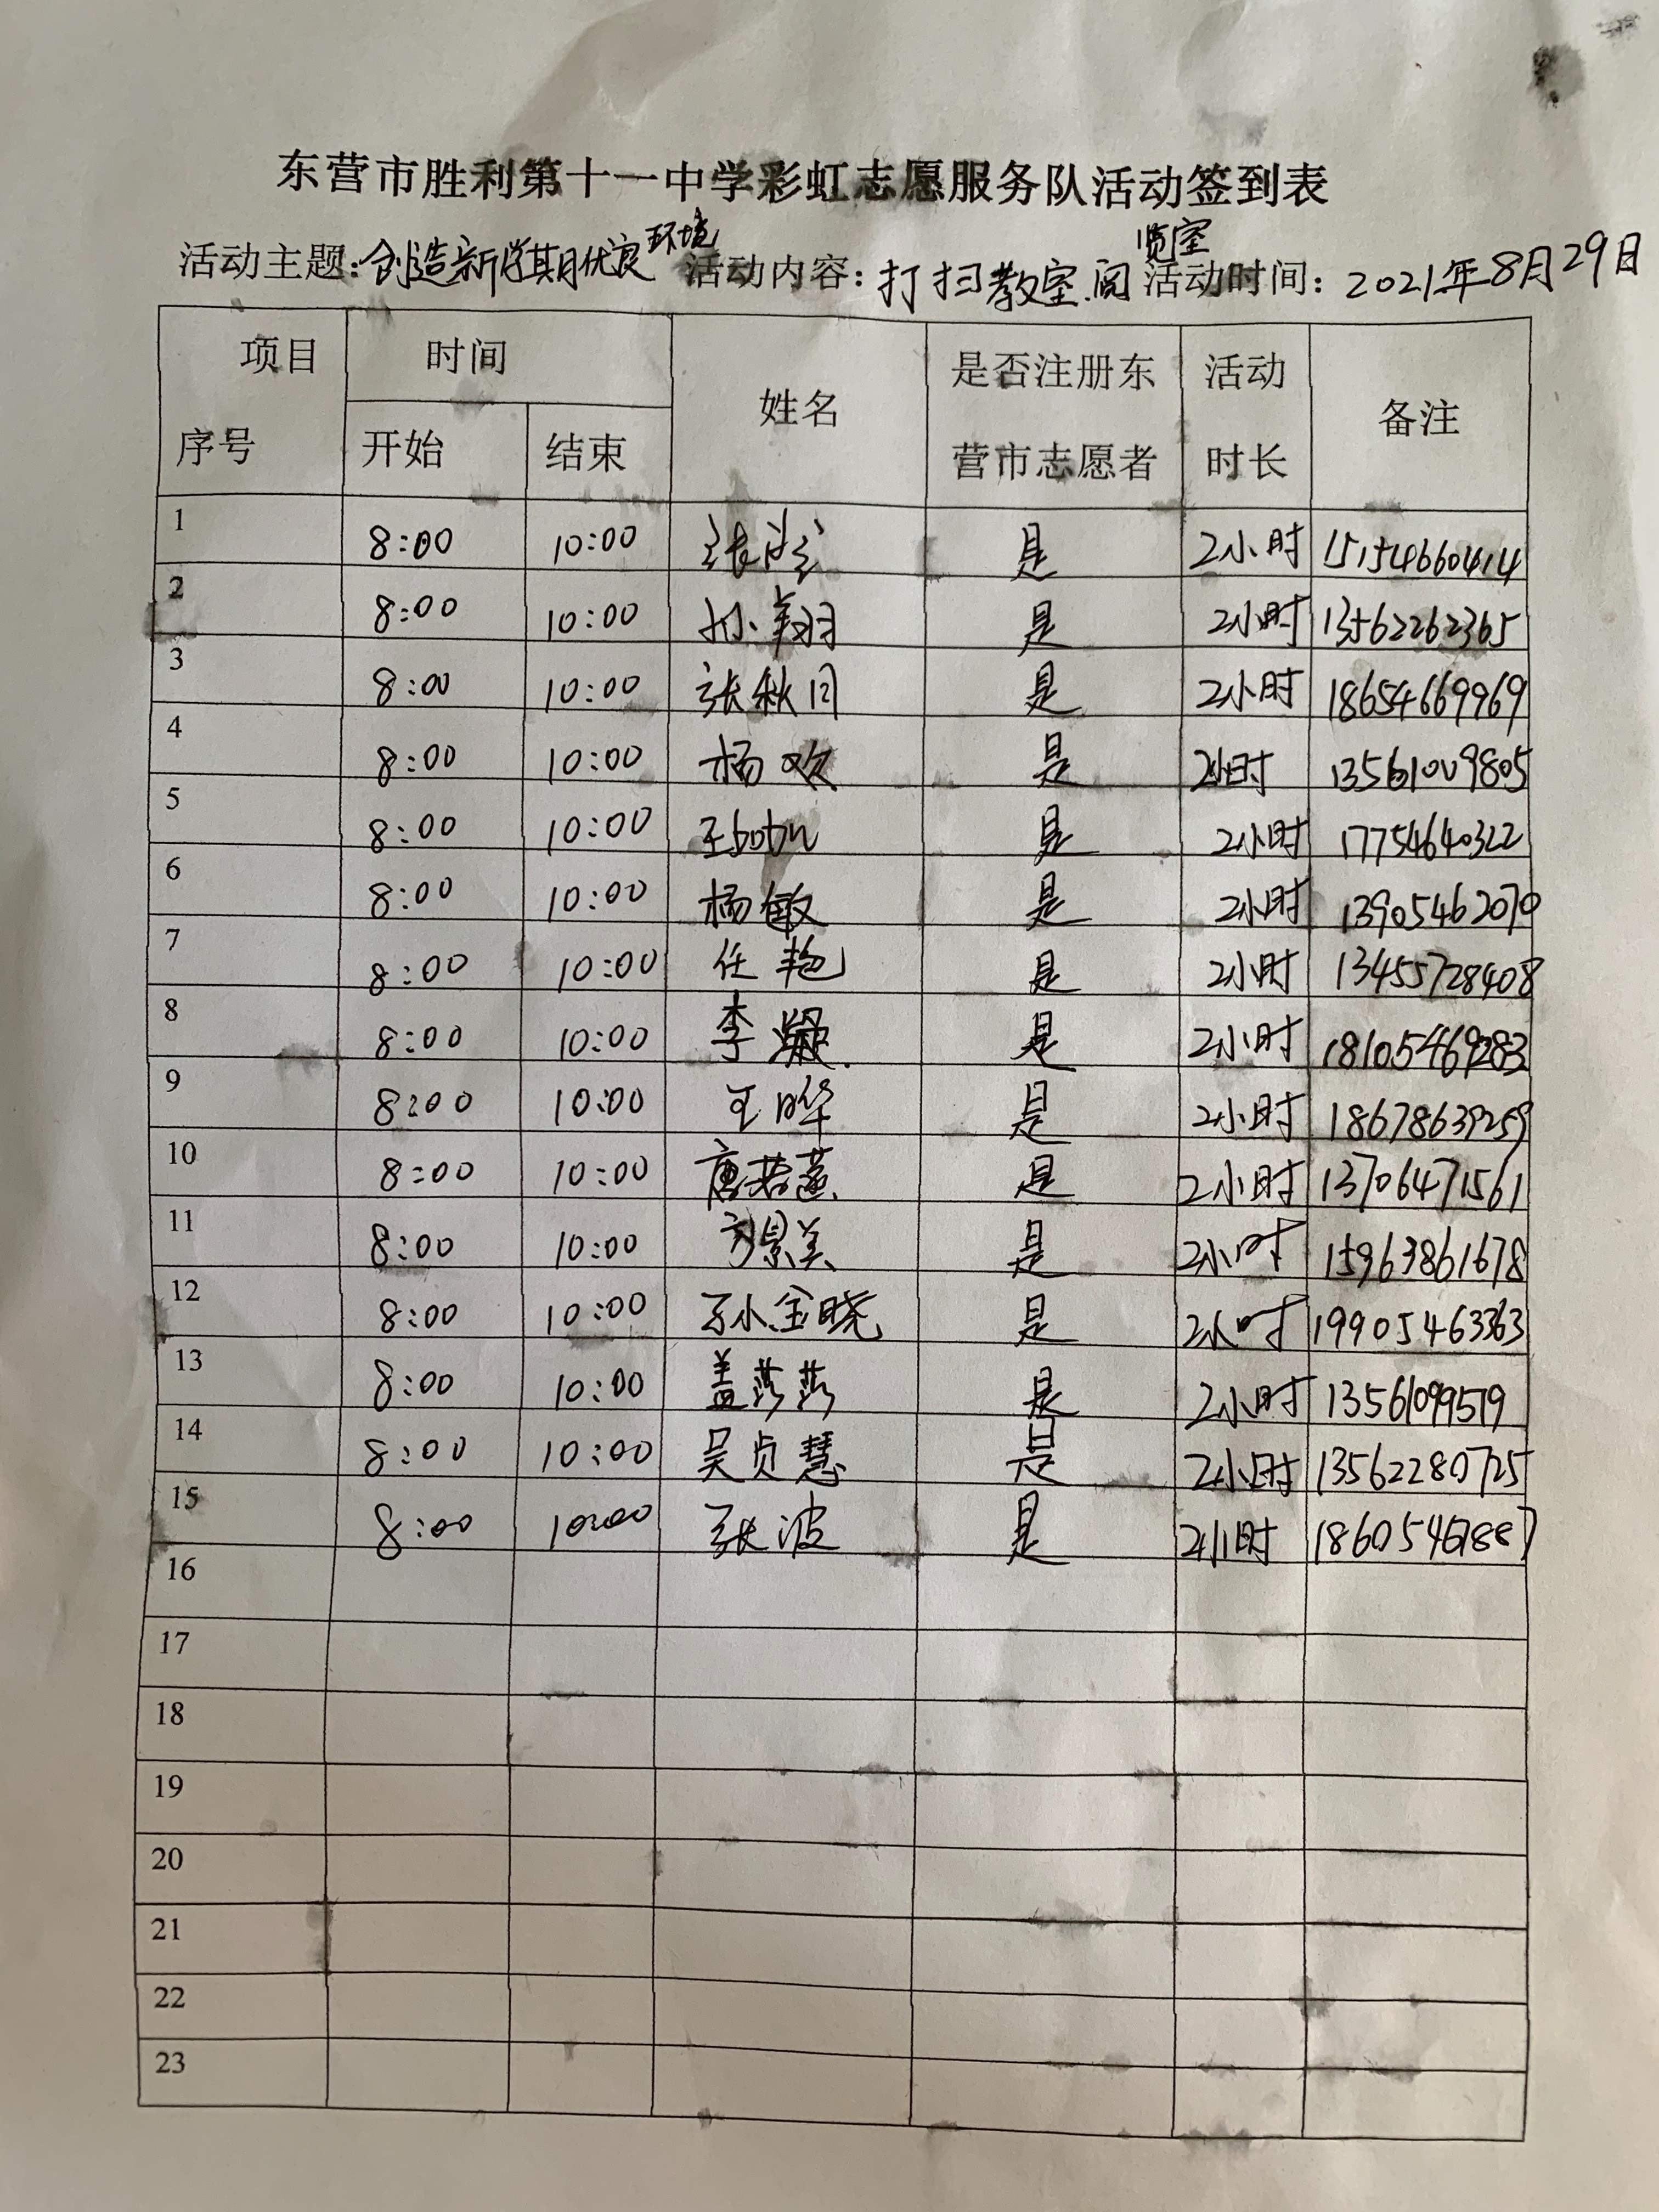 东营市胜利第十一中学彩虹志愿服务队活动签到表
活动主题:创造新学期优良环境 活动内容:打扫教室.阅览室 活动时间:2021年8月29日
项目 时间 姓名 是否注册东 活动 备注
序号 开始 结束 营市志愿者 时长
1 8:00 10:00 张 是 2小时 15154660414
2 8:00 10:00 孙翔羽 是 2小时 13562262365
3 8:00 10:00 张秋月 是 2小时 18654669969
4 8:00 10:00 杨欢 是 2小时 13561009805
5 8:00 10:00 王 是 2小时 17754640322
6 8:00 10:00 杨敏 是 2小时 13905462070
7 8:00 10:00 任艳 是 2小时 13455728408
8 8:00 10:00 李 是 2小时 18105469283
9 8:00 10:00 王晔 是 2小时 18678639259
10 8:00 10:00 唐若燕 是 2小时 13706471561
11 8:00 10:00 景美 是 2小时 15963861678
12 8:00 10:00 孙金晓 是 2小时 19905463363
13 8:00 10:00 盖莎莎 是 2小时 13561099579
14 8:00 10:00 吴贞慧 是 2小时 13562280725
15 8:00 10:00 张波 是 2小时 18605467887
16
17
18
19
20
21
22
23